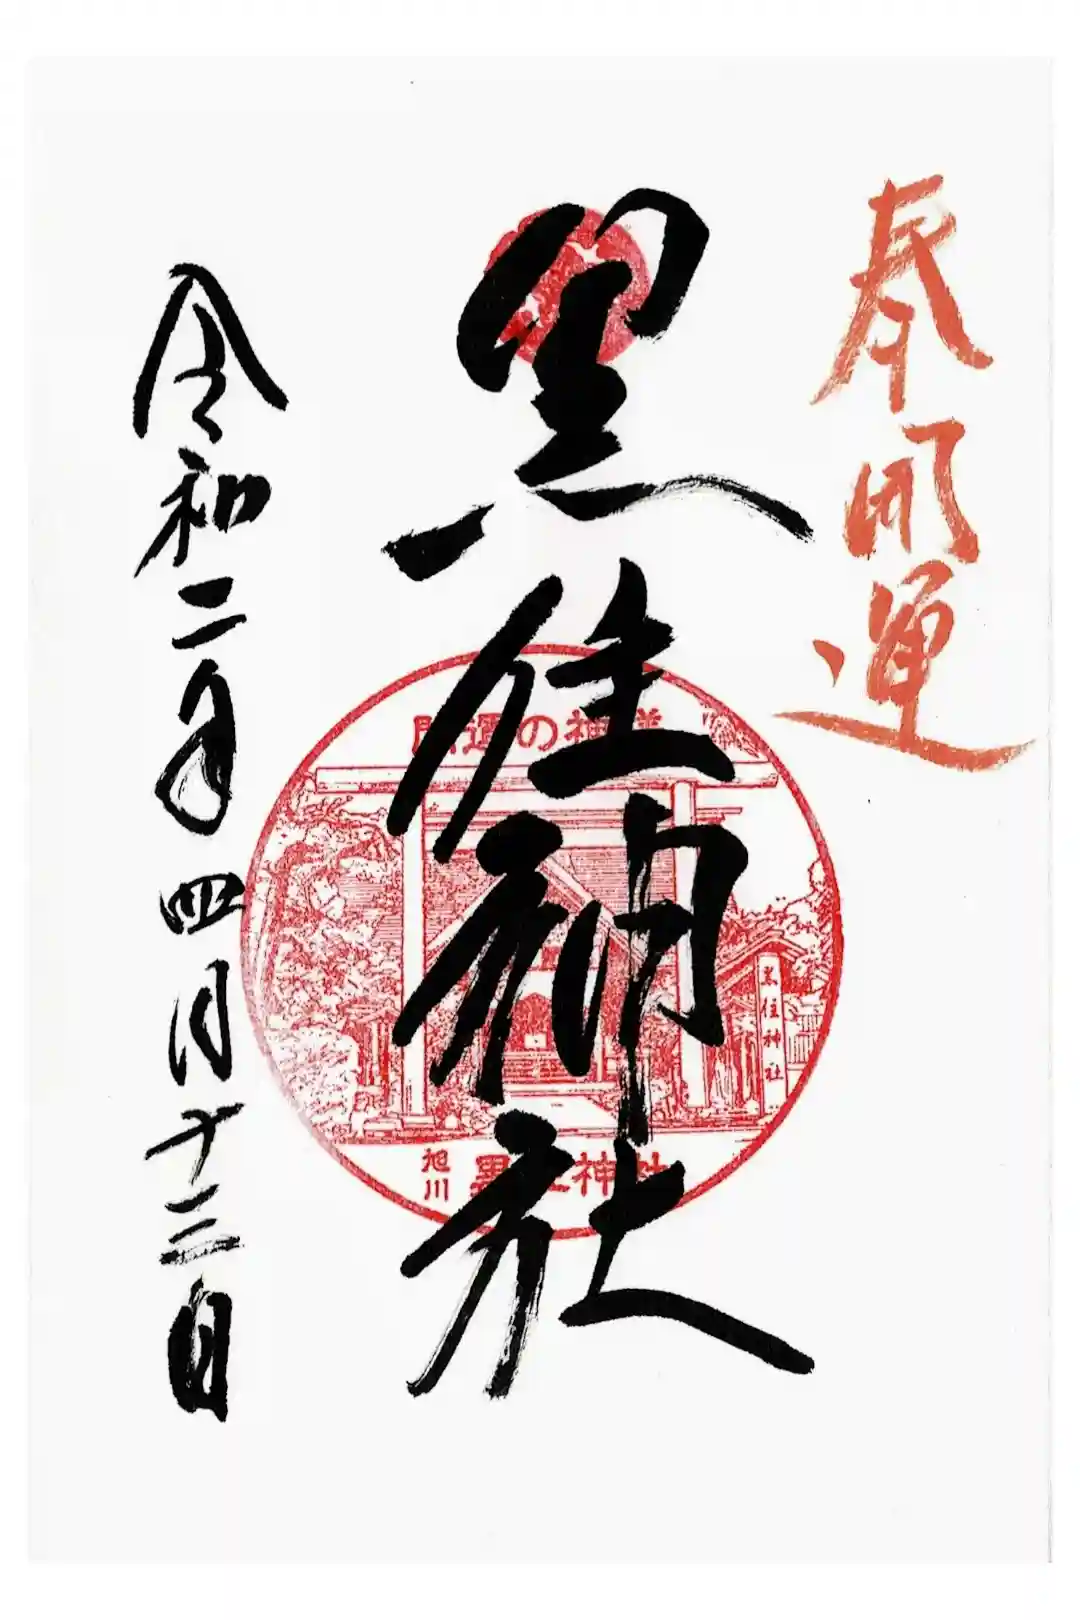 奉開運
黒住神社
令和二年四月十二日
開運の神様
黒住神社
旭川
黒住神社